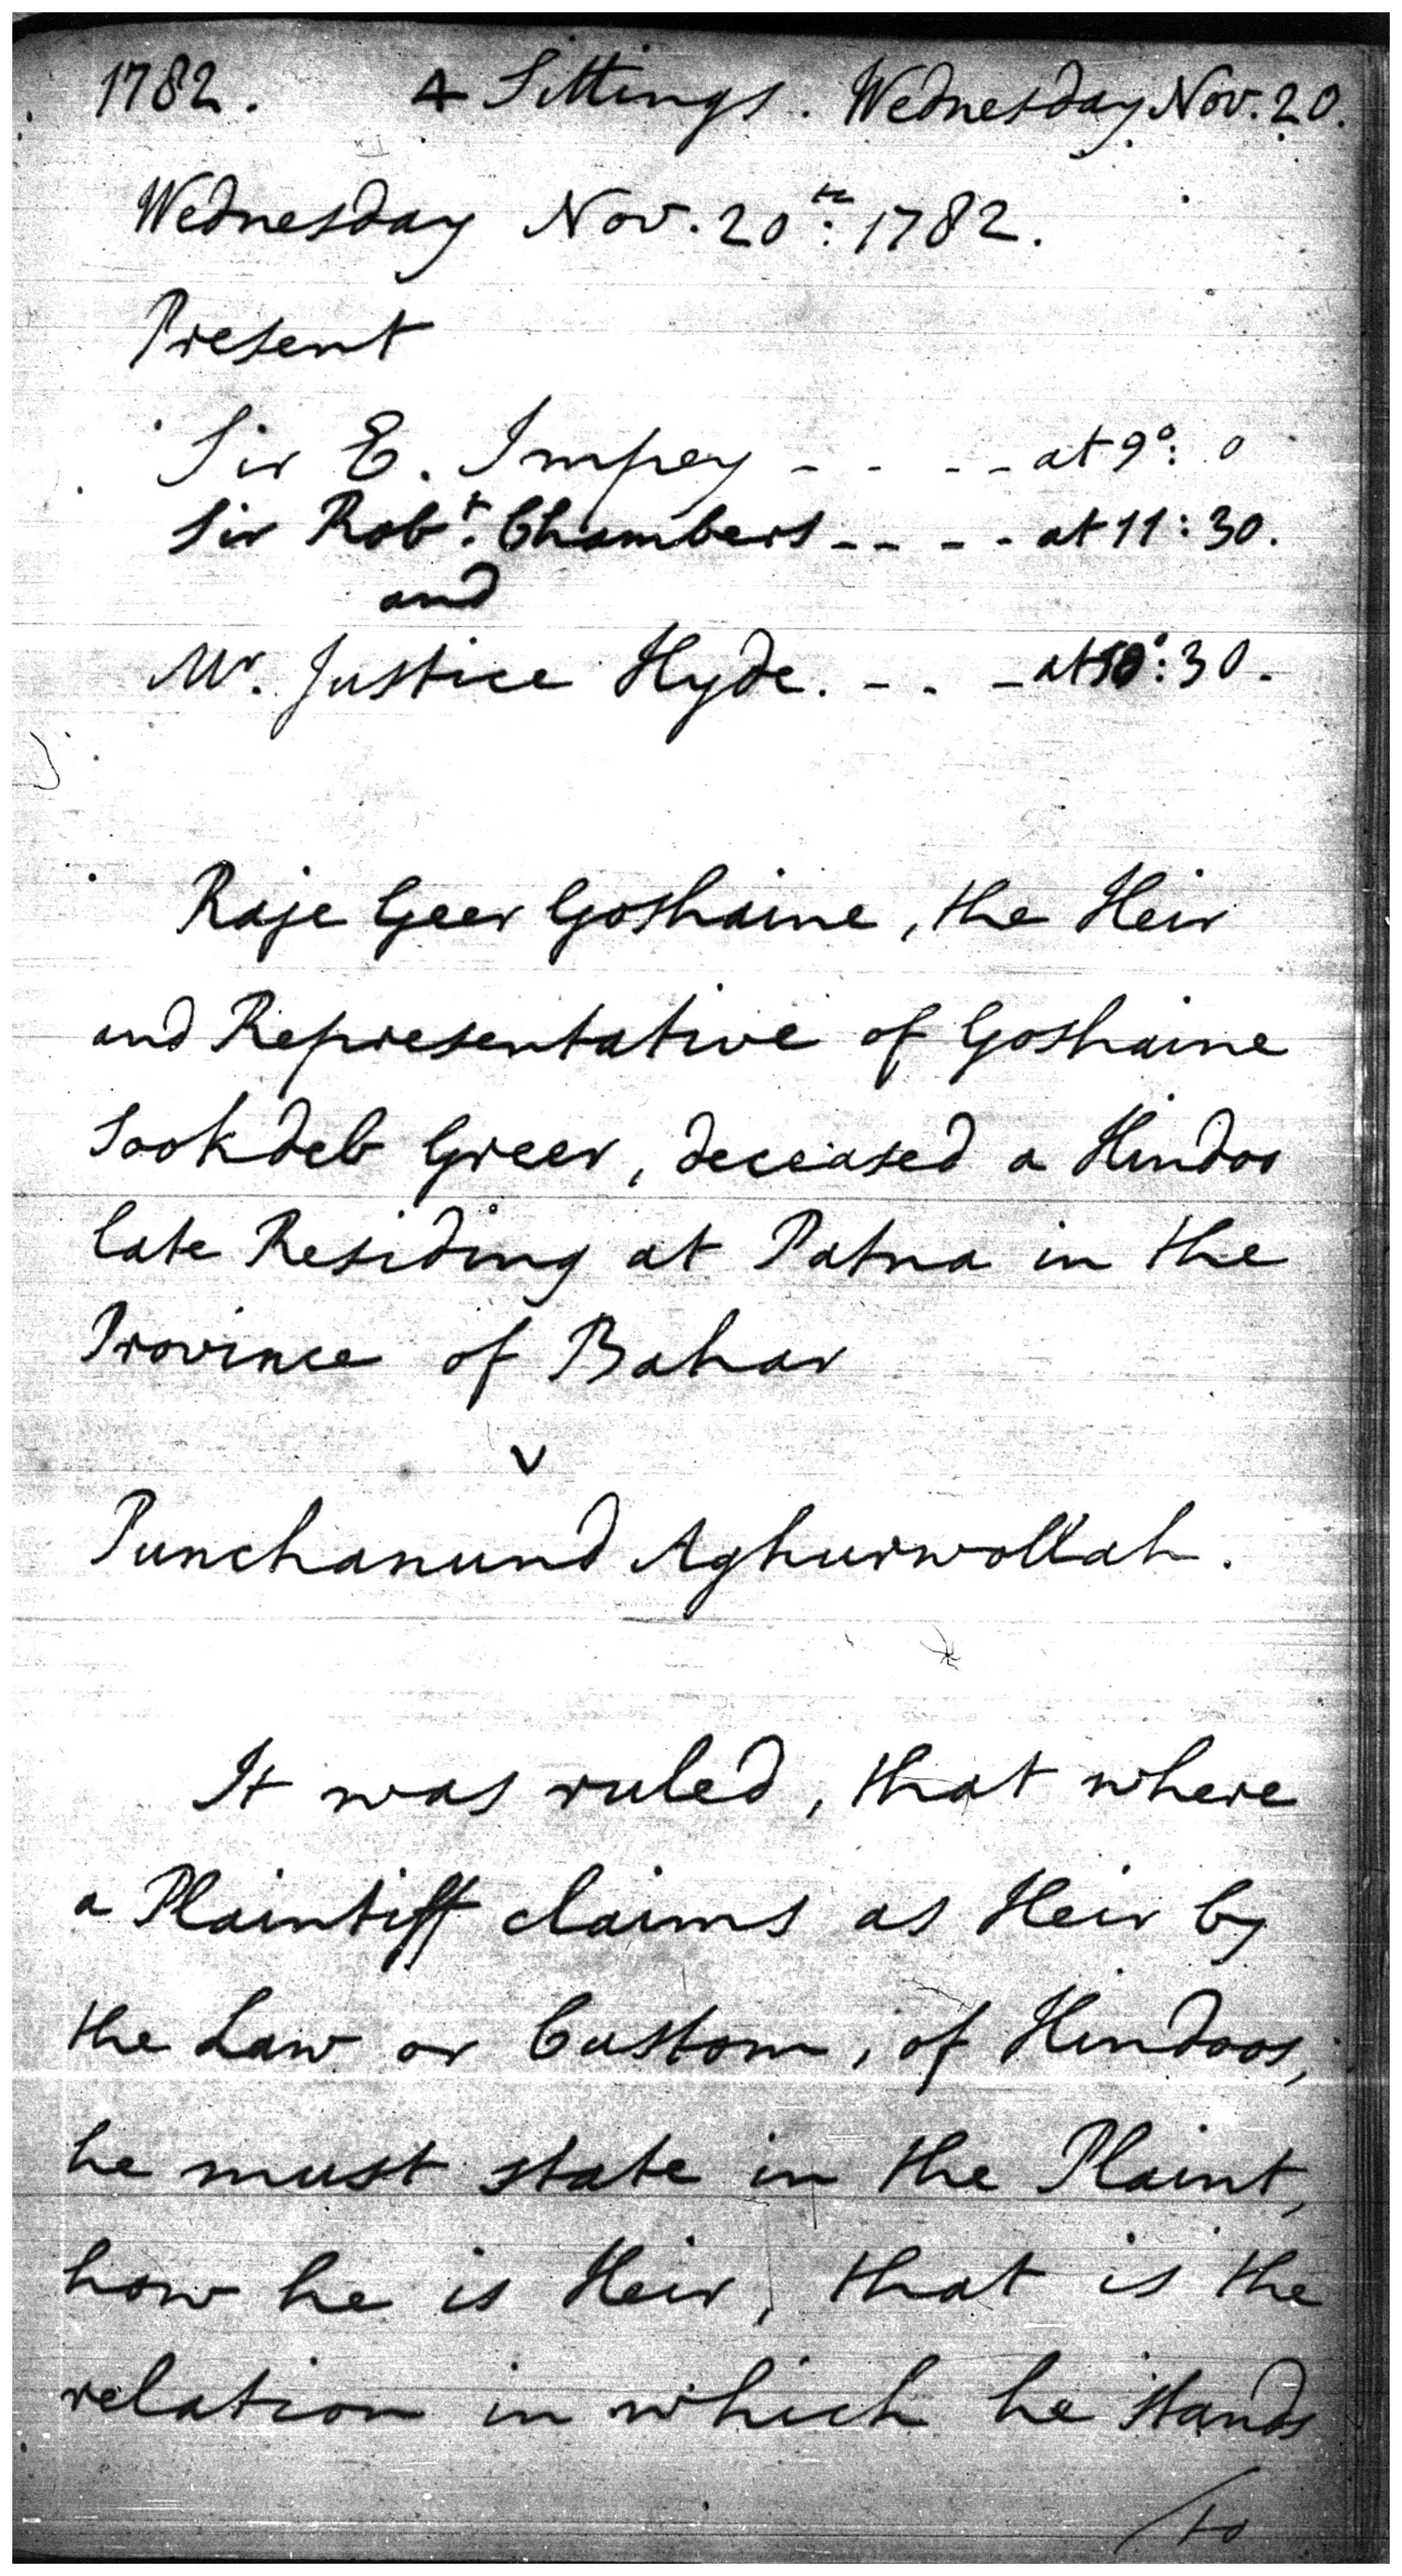 1782. 4 Sittings. Wednesday Nov. 20.
Wednesday Nov. 20th: 1782.
Present
Sir E. Impey - - - - at 9°: 0
Sir Robt. Chambers - - - - at 11:30.
and
Mr. Justice Hyde. - - - at 10°:30.
Raje Geer Goshaine, the Heir
and Representative of Goshaine
Sookdeb Greer, deceased a Hindoo
late Residing at Patna in the
Province of Bahar
v
Punchanund Aghurwollah.
It was ruled, that where
a Plaintiff claims as Heir by
the Law or Custom, of Hindoos,
he must state in the Plaint,
how he is Heir, that is the
relation in which he stands
/to